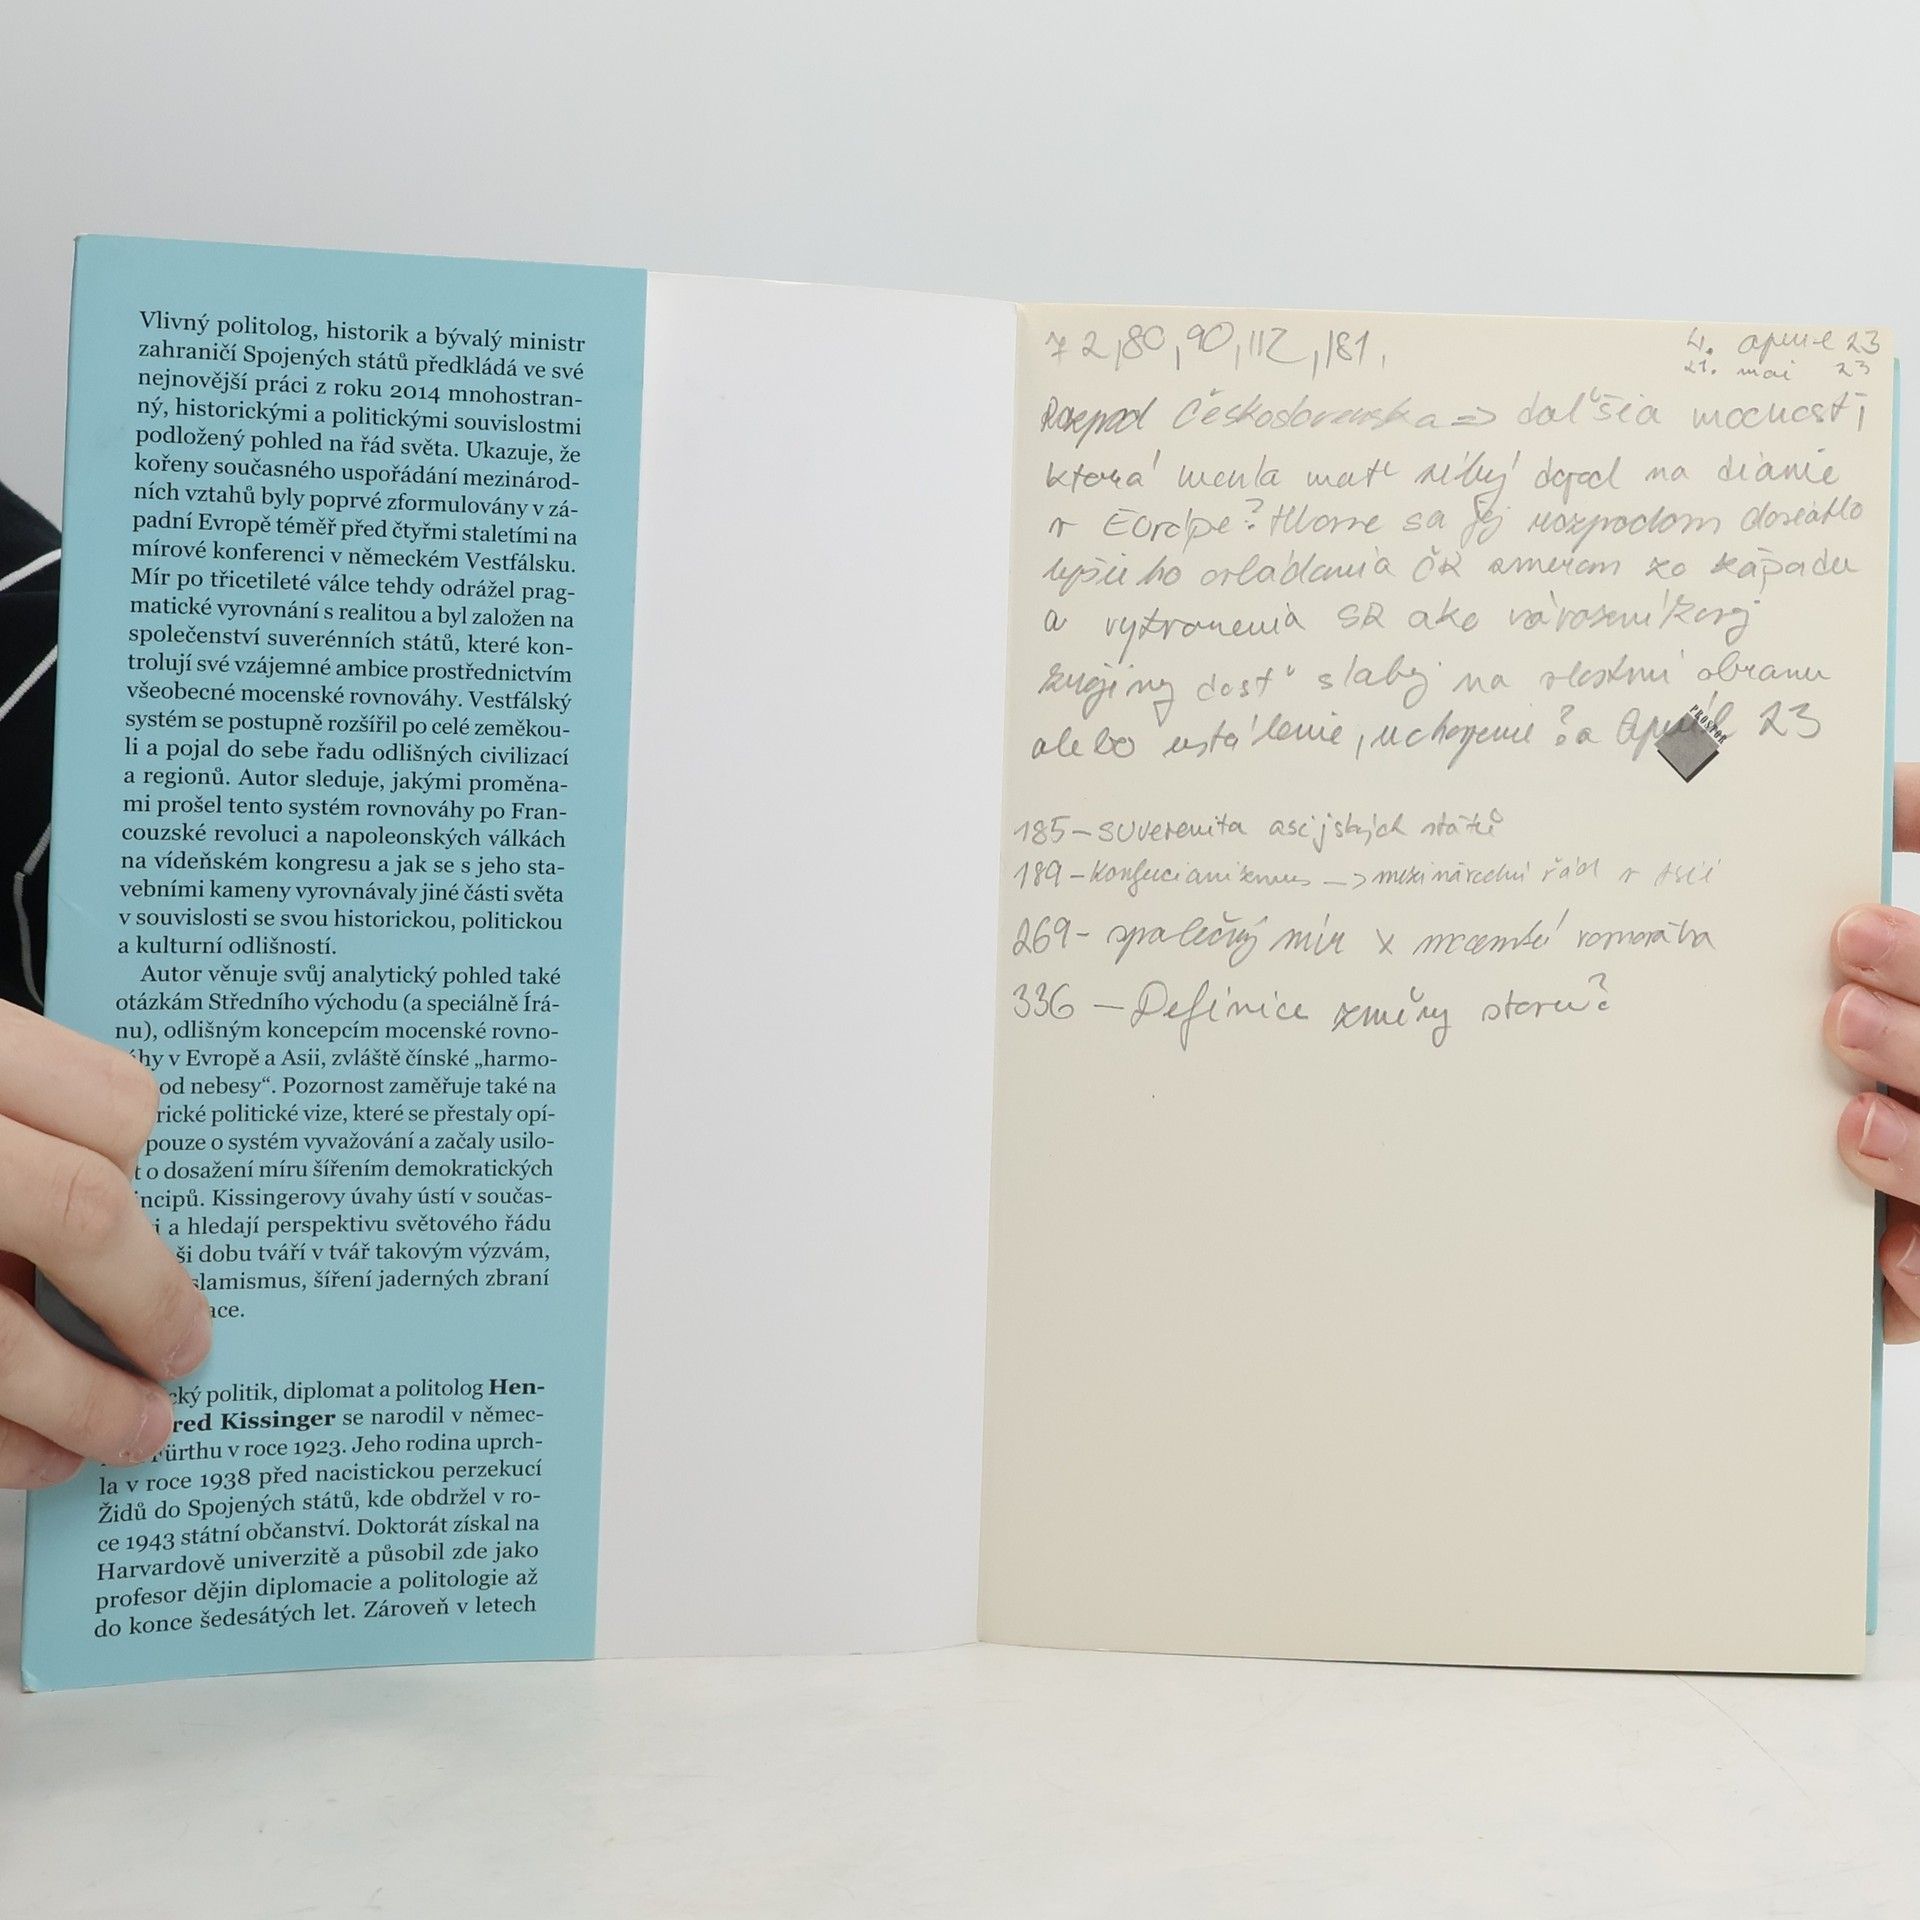 Vlivný politolog, historik a bývalý ministr
zahraničí Spojených států předkládá ve své
nejnovější práci z roku 2014 mnohostran-
ný, historickými a politickými souvislostmi
podložený pohled na řád světa. Ukazuje, že
kořeny současného uspořádání mezinárod-
ních vztahů byly poprvé zformulovány v zá-
padní Evropě téměř před čtyřmi staletími na
mírové konferenci v německém Vestfálsku.
Mír po třicetileté válce tehdy odrážel prag-
matické vyrovnání s realitou a byl založen na
společenství suverénních států, které kon-
trolují své vzájemné ambice prostřednictvím
všeobecné mocenské rovnováhy. Vestfálský
systém se postupně rozšířil po celé zeměkou-
li a pojal do sebe řadu odlišných civilizací
a regionů. Autor sleduje, jakými proměna-
mi prošel tento systém rovnováhy po Fran-
couzské revoluci a napoleonských válkách
na vídeňském kongresu a jak se s jeho sta-
vebními kameny vyrovnávaly jiné části světa
v souvislosti se svou historickou, politickou
a kulturní odlišností.
Autor věnuje svůj analytický pohled také
otázkám Středního východu (a speciálně Írá-
nu), odlišným koncepcím mocenské rovno-
áhy v Evropě a Asii, zvláště čínské „harmo-
od nebesy“. Pozornost zaměřuje také na
rické politické vize, které se přestaly opí-
pouze o systém vyvažování a začaly usilo-
t o dosažení míru šířením demokratických
incipů. Kissingerovy úvahy ústí v součas-
i a hledají perspektivu světového řádu
ši dobu tváří v tvář takovým výzvám,
slamismus, šíření jaderných zbraní
ace.
cký politik, diplomat a politolog Hen-
red Kissinger se narodil v němec-
Fürthu v roce 1923. Jeho rodina uprch-
la v roce 1938 před nacistickou perzekucí
Židů do Spojených států, kde obdržel v ro-
ce 1943 státní občanství. Doktorát získal na
Harvardově univerzitě a působil zde jako
profesor dějin diplomacie a politologie až
do konce šedesátých let. Zároveň v letech
72, 80, 90, 112, 181,
4. apríl 23
21. mai 23
Rozpad Československa => ďalšia mocnosť,
ktorá mohla mať silný dopad na dianie
v Európe? Hlavne sa jej rozpadom dosiahlo
lepšieho ovládania ČR smerom zo západu
a vytvorenia SR ako
dosť slabej na vlastnú obranu
alebo ustálenie, uchopenie? a apríl 23
PROSTOR
185 – suverenita asijských států
189 – Konfucianizmus –> mezinárodní řád v Asii
269 – společný mír x mocenská rovnováha
336 – Definice změny stavu?